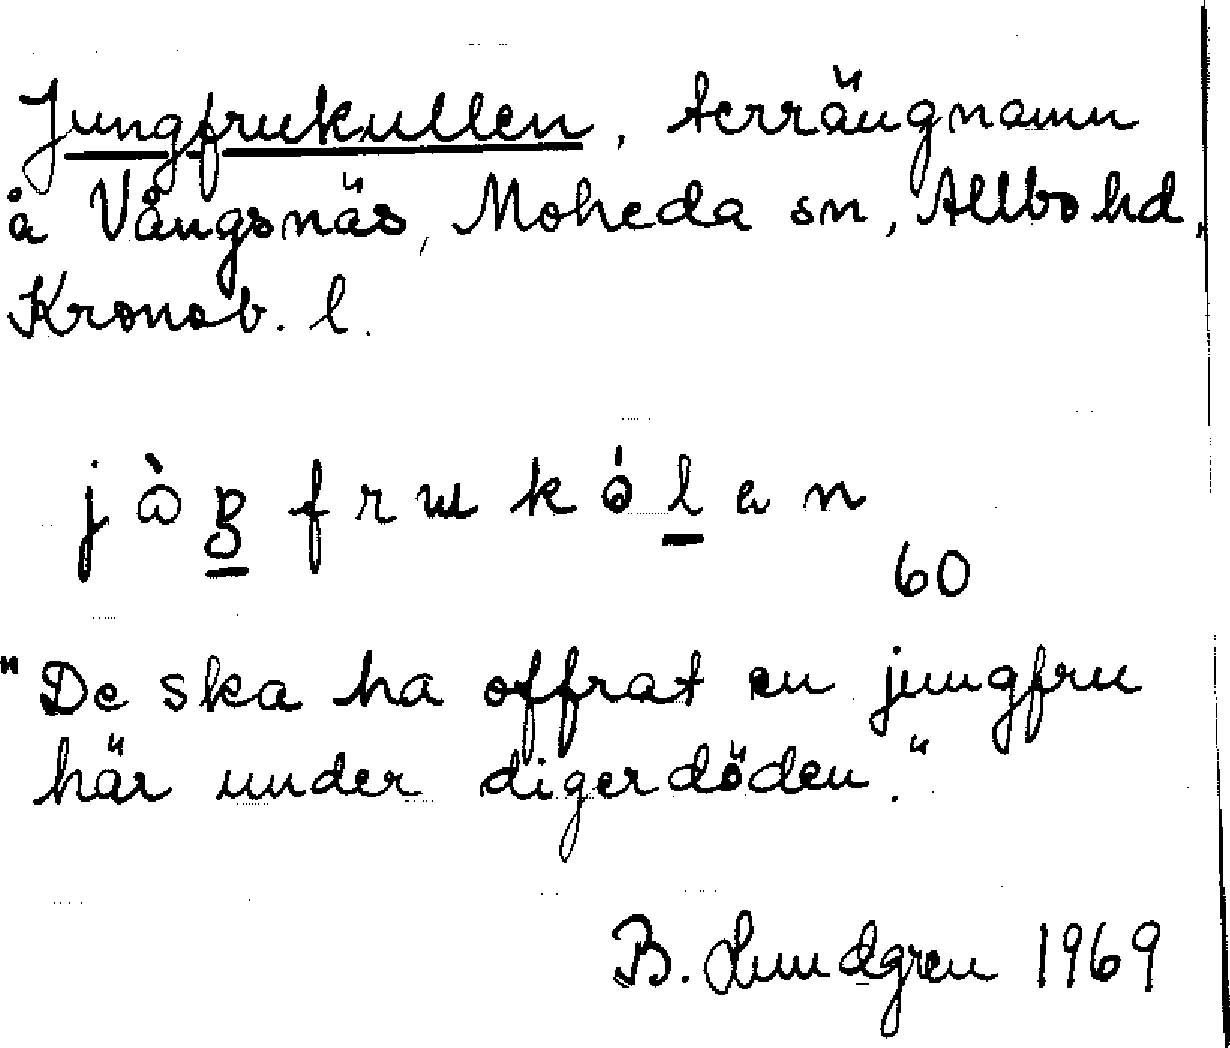 Jungfrukullen, terrängnamn
å Vångsnäs, Moheda sn, Allbo hd,
Kronob. l.
60
"De ska ha offrat en jungfru
här under digerdöden."
B. Lundgren 1969